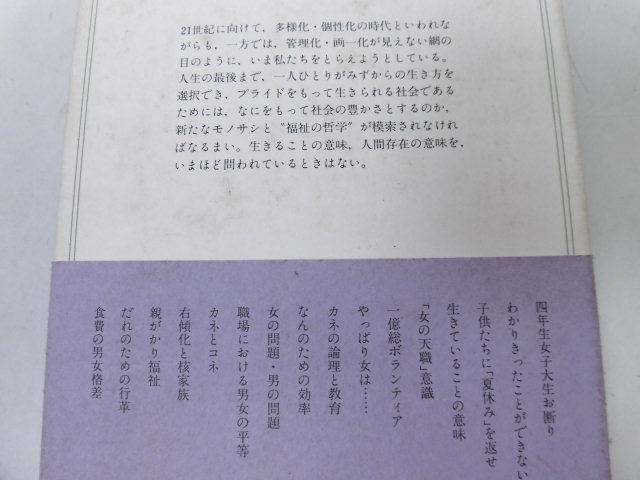 21世紀に向けて，多様化・個性化の時代といわれな
がらも，一方では，管理化・画一化が見えない網の
目のように，いま私たちをとらえようとしている。
人生の最後まで，一人ひとりがみずからの生き方を
選択でき，プライドをもって生きられる社会である
ためには，なにをもって社会の豊かさとするのか，
新たなモノサシと〝福祉の哲学〟が模索されなけれ
ばなるまい。生きることの意味，人間存在の意味を，
いまほど問われているときはない。
四年生女子大生お断り
わかりきったことができない
子供たちに「夏休み」を返せ
生きていることの意味
「女の天職」意識
一億総ボランティア
やっぱり女は……
カネの論理と教育
なんのための効率
女の問題・男の問題
職場における男女の平等
カネとコネ
右傾化と核家族
親がかり福祉
だれのための行革
食費の男女格差